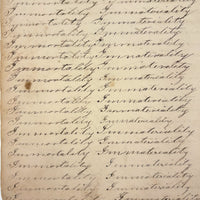 Immortality Immateriality
Immortality Immateriality
Immortality Immateriality
Immortality Immateriality
Immortality Immateriality
Immortality Immateriality
Immortality Immateriality
Immortality Immateriality
Immortality Immateriality
Immortality Immateriality
Immortality Immateriality
Immortality Immateriality
Immortality Immateriality
Immortality Immateriality
Immortality Immateriality